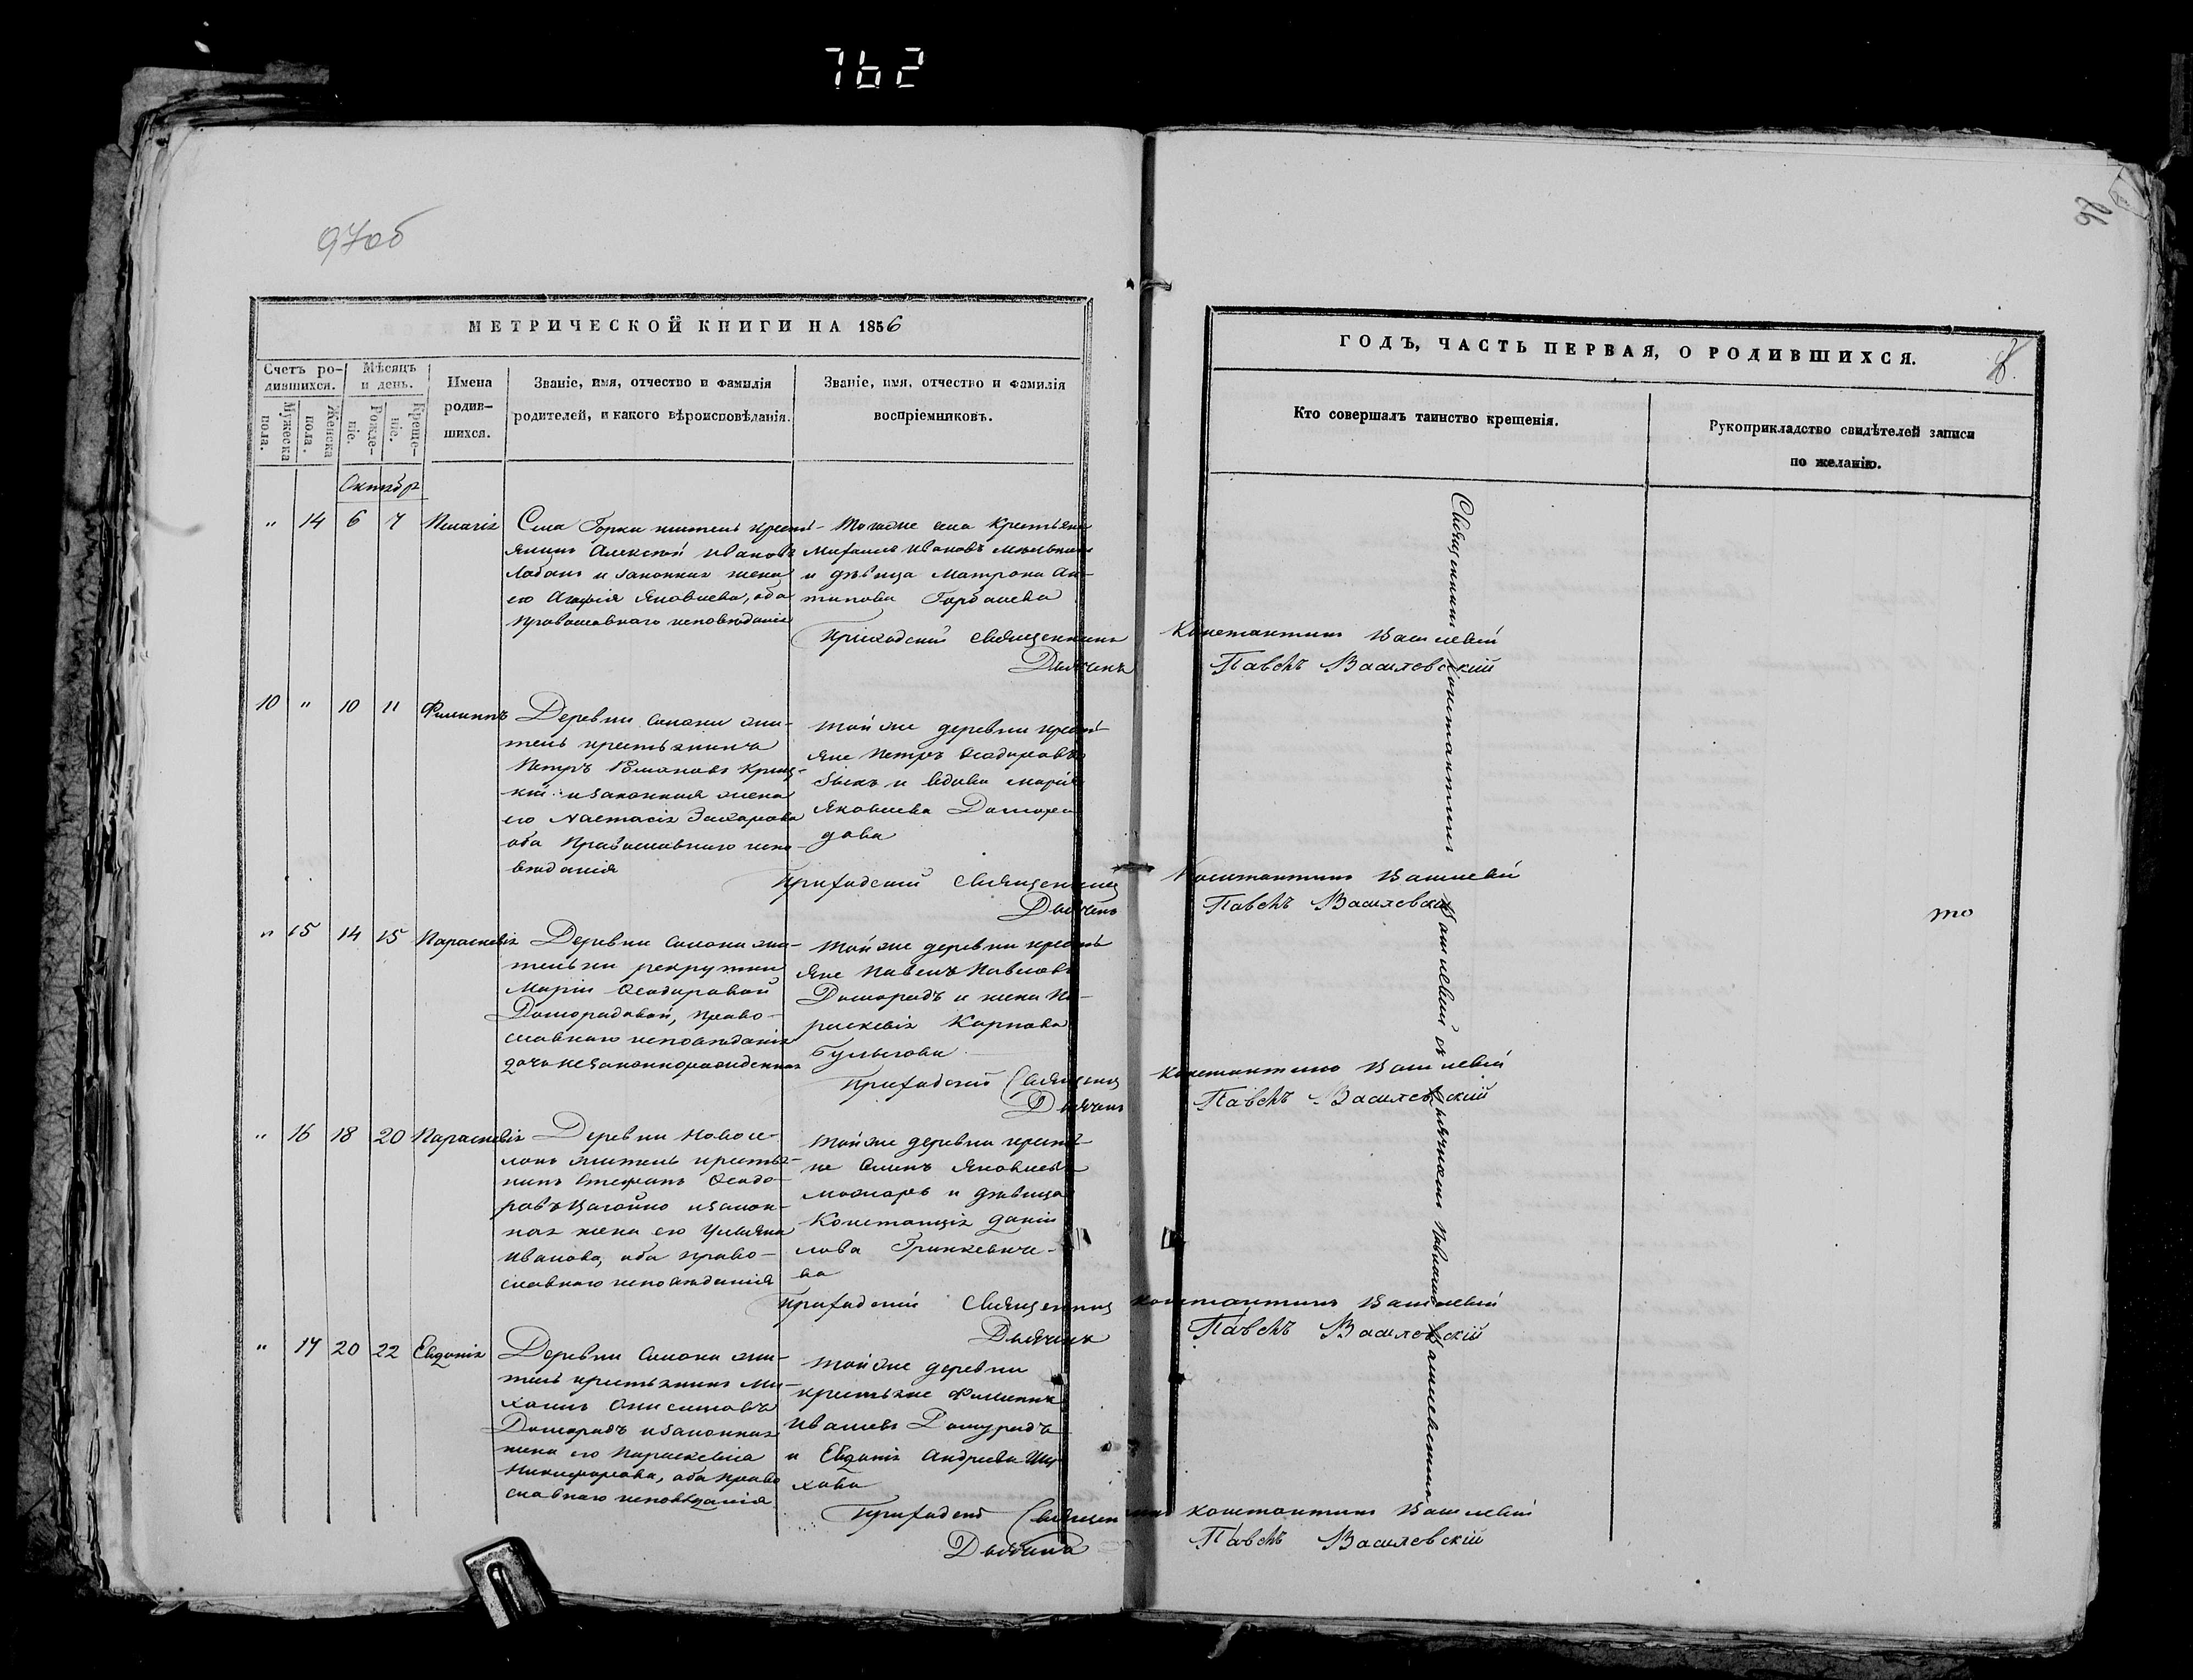 762
97об
МЕТРИЧЕСКОЙ КНИГИ НА 1856
Счетъ ро-
дившихся.
Мѣсяцъ
и день.
Имена
родив-
шихся.
Званіе, имя, отчество и фамилія
родителей, и какого вѣроисповѣданія.
Званіе, имя, отчество и фамилія
воспріемниковъ.
Мужеска
пола.
Женска
пола.
Рожде-
ніе.
Креще-
ніе.
ГОДЪ, ЧАСТЬ ПЕРВАЯ, О РОДИВШИХСЯ.
Кто совершалъ таинство крещенія.
Рукоприкладство свидѣтелей записи
по желанію.
Октябр
" 14 6 7 Пелагія
Села Горки житель кресть-
янинъ Алексѣй Ивановъ
Лобанъ и законная жена
его Агафія Яковлева, оба
Православнаго исповѣданія
Того же села Крестьяни
Михаилъ Ивановъ
и дѣвица Матрона Ан-
типова Горбачева
Приходскій Священникъ Константинъ
Дьячекъ Павелъ Василевскій
10 " 10 11 Филиппъ
Деревни жи-
тель крестьянинъ
Петръ
и законная жена
его Настасія Захарова
оба Православнаго испо-
вѣданія
Той же деревни кресть-
яне Петръ Ѳеодоровъ
Зыкъ и вдова Марія
Яковлева Домора
дова
Приходскій Священникъ Константинъ
Дьячекъ Павелъ Василевскій
то
" 15 14 15 Параскевія
Деревни жи-
тельки рекрутки
Маріи Ѳеодоровой
Доморадовой, право-
славнаго исповѣданія
дочь незаконнорожденная
Той же деревни кресть
яне Павелъ Павловъ
Доморадъ и жена Па-
раскевія Карпова
Приходскій Священникъ Константинъ
Дьячекъ Павелъ Василевскій
" 16 18 20 Параскевія
Деревни Новосе-
локъ житель крестья-
нинъ Стефанъ Ѳеодо-
ровъ и закон-
ная жена его Ульяна
Иванова, оба право-
славнаго исповѣданія
Той же деревни крестья-
не Яковлевъ
и дѣвица
Констанція Даніи
лова Гринкевиче-
ва
Приходскій Священникъ Константинъ
Дьячекъ Павелъ Василевскій
" 17 20 22 Евдокія
Деревни жи-
тель крестьянинъ Ми-
хаилъ Онисимовъ
Доморадъ и законная
жена его Параскевіа
Никифорова, оба право
славнаго исповѣданія
Той же деревни
крестьяне Филиппъ
Ивановъ Доморадъ
и Евдокія Андреева
Приходскій Священникъ Константинъ
Дьячекъ Павелъ Василевскій
Священникъ Константинъ съ Дьячкомъ Павломъ Василевскимъ